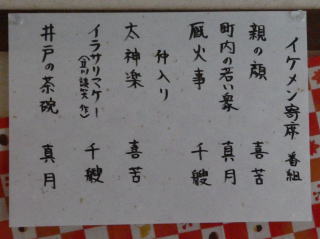 イケメン寄席 番組
親の顔 喜苦
町内の若い衆 真月
厩火事 千艘
仲入り
太神楽 喜苦
イラサリマケー 千艘
(立川談笑 作)
井戸の茶碗 真月